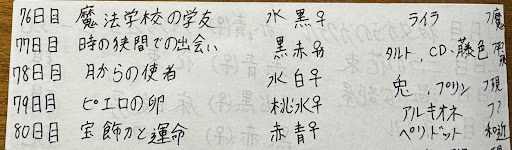 76日目 魔法学校の学友 水黒♀ ライラ 魔
77日目 時の狭間での出会い 黒赤 タルト,CD、藤色
78日目 月からの使者 水白♀ 兎,プリン 現
79日目 ピエロの卵 桃水♀ アルキオネ ??
80日目 宝飾刀と運命 赤青♀ ペリドット 和近